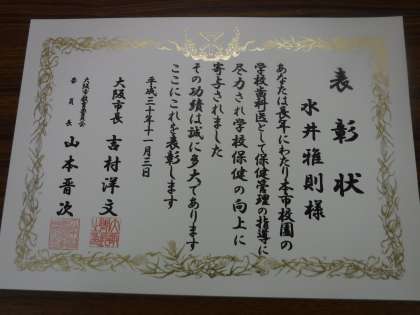 表彰状
水井雅則様
あなたは長年にわたり本市校園の
学校歯科医として保健管理の指導に
尽力され学校保健の向上に
寄与されました
その功績は誠に多大であります
ここにこれを表彰します
平成三十年十一月三日
大阪市長 吉村洋文
大阪市教育委員会
委員長 山本晋次